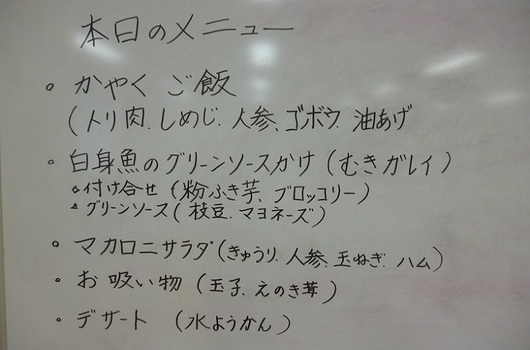 本日のメニュー
。かやくご飯
(トリ肉、しめじ、人参、ゴボウ、油あげ
。白身魚のグリーンソースかけ(むきガレイ)
*付け合せ(粉ふき芋、ブロッコリー)
*グリーンソース(枝豆、マヨネーズ)
。マカロニサラダ(きゅうり、人参、玉ねぎ、ハム)
・お吸い物(玉子、えのき茸)
・デザート(水ようかん)